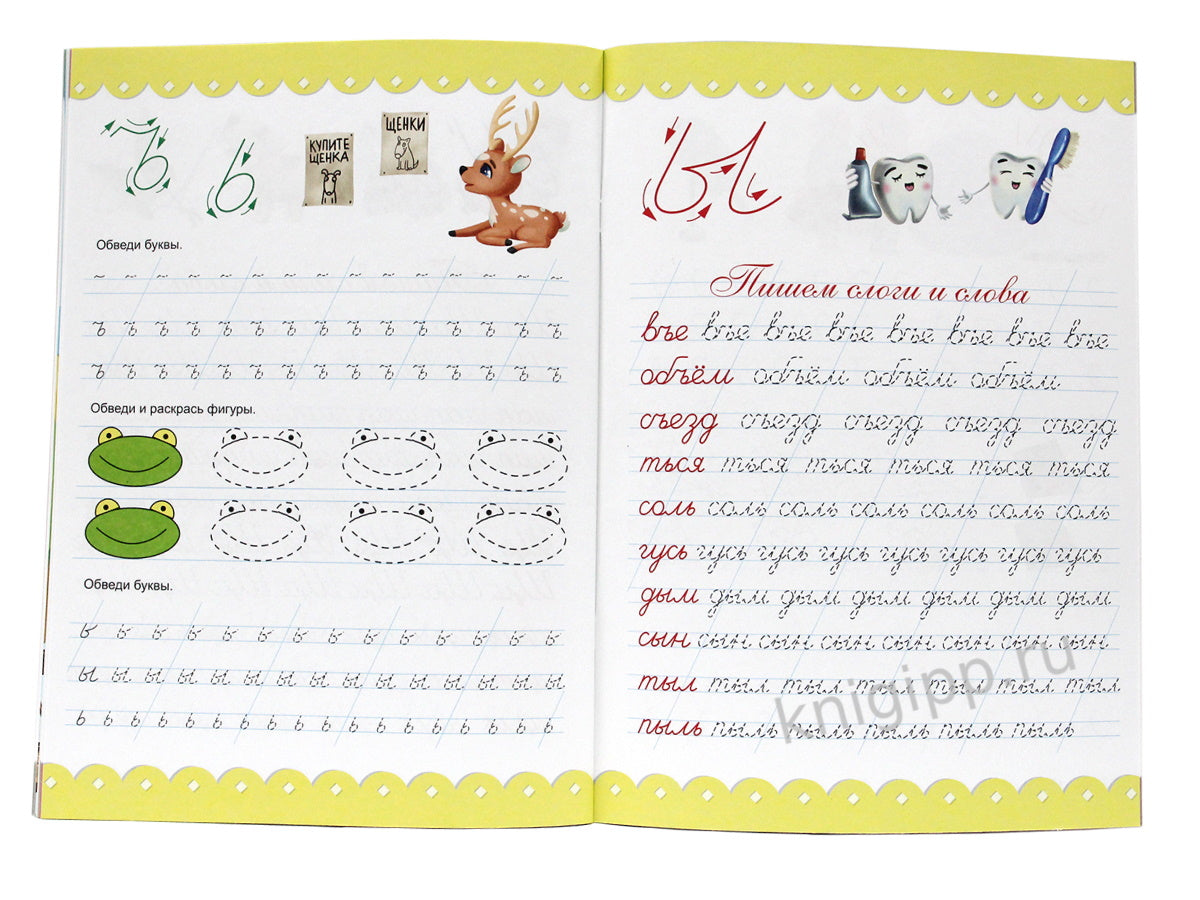 ъ ь
КУПИТЕ
ЩЕНКА
ЩЕНКИ
Обведи буквы.
ъ ъ ъ ъ ъ ъ ъ ъ ъ ъ ъ ъ ъ ъ ъ
ъ ъ ъ ъ ъ ъ ъ ъ ъ ъ ъ ъ ъ ъ ъ
Обведи и раскрась фигуры.
Обведи буквы.
ь ь ь ь ь ь ь ь ь ь ь ь ь ь
ы ы ы ы ы ы ы ы ы ы ы ы ы ы ы
ь ь ь ь ь ь ь ь ь ь ь ь ь ь ь ь ь ь
ы
Пишем слоги и слова
въе въе въе въе въе въе въе въе
объём объём объём объём
съезд съезд съезд съезд съезд
ться ться ться ться ться ться
соль соль соль соль соль соль соль
гусь гусь гусь гусь гусь гусь гусь гусь
дым дым дым дым дым дым дым
сын сын сын сын сын сын сын сын
тыл тыл тыл тыл тыл тыл тыл
пыль пыль пыль пыль пыль пыль
knigipp.ru